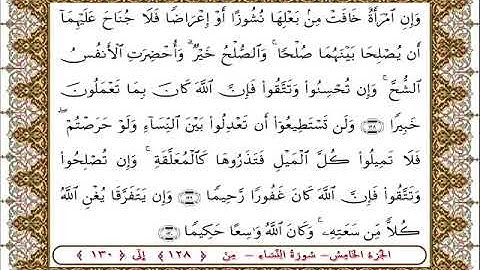 وَإِنِ ٱمْرَأَةٌ خَافَتْ مِنۢ بَعْلِهَا نُشُوزًا أَوْ إِعْرَاضًا فَلَا جُنَاحَ عَلَيْهِمَآ
أَن يُصْلِحَا بَيْنَهُمَا صُلْحًا ۚ وَٱلصُّلْحُ خَيْرٌ ۗ وَأُحْضِرَتِ ٱلْأَنفُسُ
ٱلشُّحَّ ۚ وَإِن تُحْسِنُوا۟ وَتَتَّقُوا۟ فَإِنَّ ٱللَّهَ كَانَ بِمَا تَعْمَلُونَ
خَبِيرًا ١٢٨ وَلَن تَسْتَطِيعُوٓا۟ أَن تَعْدِلُوا۟ بَيْنَ ٱلنِّسَآءِ وَلَوْ حَرَصْتُمْ ۖ
فَلَا تَمِيلُوا۟ كُلَّ ٱلْمَيْلِ فَتَذَرُوهَا كَٱلْمُعَلَّقَةِ ۚ وَإِن تُصْلِحُوا۟
وَتَتَّقُوا۟ فَإِنَّ ٱللَّهَ كَانَ غَفُورًا رَّحِيمًا ١٢٩ وَإِن يَتَفَرَّقَا يُغْنِ ٱللَّهُ
كُلًّا مِّن سَعَتِهِۦ ۚ وَكَانَ ٱللَّهُ وَٰسِعًا حَكِيمًا ١٣٠
الجزء الخامس - سورة النساء - من ﴿ ١٢٨ ﴾ إلى ﴿ ١٣٠ ﴾